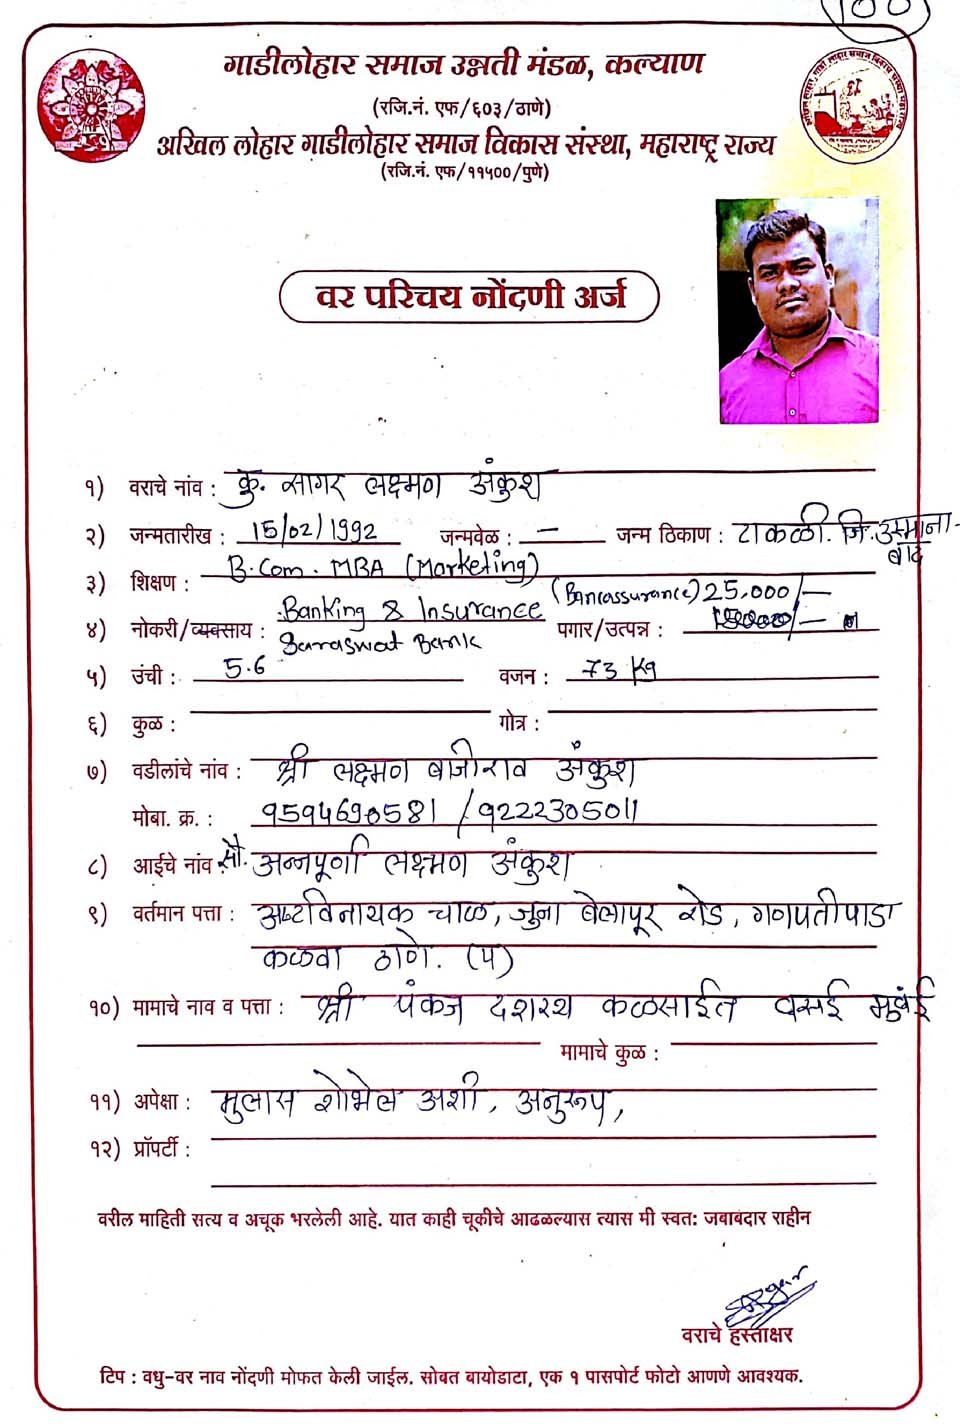 100
गाडीलोहार समाज उन्नती मंडळ, कल्याण
(रजि.नं. एफ/६०३/ठाणे)
अखिल लोहार गाडीलोहार समाज विकास संस्था, महाराष्ट्र राज्य
(रजि.नं. एफ/११५००/पुणे)
वर परिचय नोंदणी अर्ज
१) वराचे नांव : कु. सागर लक्ष्मण अंकुश
२) जन्मतारीख : 15/02/1992 जन्मवेळ : — जन्म ठिकाण : टाकळी. जि. उस्मानाबाद
३) शिक्षण : B.Com. MBA (Marketing)
४) नोकरी/व्यवसाय : Banking & Insurance (Bancassurance) पगार/उत्पन्न : 25,000/—
Saraswat Bank
५) उंची : 5.6 वजन : 73 Kg
६) कुळ : गोत्र :
७) वडीलांचे नांव : श्री लक्ष्मण बाजीराव अंकुश
मोबा. क्र. : 9594690581 / 9222305011
८) आईचे नांव : सौ. अन्नपूर्णा लक्ष्मण अंकुश
९) वर्तमान पत्ता : अष्टविनायक चाळ, जुना बेलापूर रोड, गणपतीपाडा
कळवा ठाणे. (प)
१०) मामाचे नाव व पत्ता : श्री पंकज दशरथ कळसाईत वसई मुंबई
मामाचे कुळ :
११) अपेक्षा : मुलास शोभेल अशी, अनुरूप,
१२) प्रॉपर्टी :
वरील माहिती सत्य व अचूक भरलेली आहे. यात काही चूकीचे आढळल्यास त्यास मी स्वत: जबाबदार राहीन
वराचे हस्ताक्षर
टिप : वधु-वर नाव नोंदणी मोफत केली जाईल. सोबत बायोडाटा, एक १ पासपोर्ट फोटो आणणे आवश्यक.